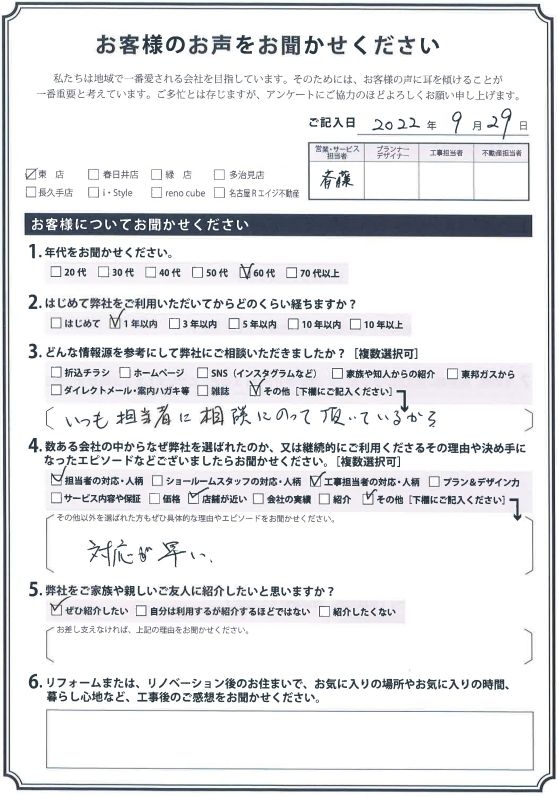 お客様のお声をお聞かせください
私たちは地域で一番愛される会社を目指しています。そのためには、お客様の声に耳を傾けることが
一番重要と考えています。ご多忙とは存じますが、アンケートにご協力のほどよろしくお願い申し上げます。
ご記入日 2022 年 9 月 29 日
営業・サービス担当者 プランナーデザイナー 工事担当者 不動産担当者
斉藤
☑東 店 □春日井店 □緑 店 □多治見店
□長久手店 □i・Style □reno cube □名古屋Rエイジ不動産
お客様についてお聞かせください
1. 年代をお聞かせください。
□20代 □30代 □40代 □50代 ☑60代 □70代以上
2. はじめて弊社をご利用いただいてからどのくらい経ちますか？
□はじめて ☑1年以内 □3年以内 □5年以内 □10年以内 □10年以上
3. どんな情報源を参考にして弊社にご相談いただきましたか？［複数選択可］
□折込チラシ □ホームページ □SNS（インスタグラムなど） □家族や知人からの紹介 □東邦ガスから
□ダイレクトメール・案内ハガキ等 □雑誌 ☑その他［下欄にご記入ください］
いつも担当者に相談にのって頂いているから
4. 数ある会社の中からなぜ弊社を選ばれたのか、又は継続的にご利用くださるその理由や決め手に
なったエピソードなどございましたらお聞かせください。［複数選択可］
☑担当者の対応・人柄 □ショールームスタッフの対応・人柄 ☑工事担当者の対応・人柄 □プラン&デザイン力
□サービス内容や保証 □価格 ☑店舗が近い □会社の実績 □紹介 ☑その他［下欄にご記入ください］
その他以外を選ばれた方もぜひ具体的な理由やエピソードをお聞かせください。
対応が早い、
5. 弊社をご家族や親しいご友人に紹介したいと思いますか？
☑ぜひ紹介したい □自分は利用するが紹介するほどではない □紹介したくない
お差し支えなければ、上記の理由をお聞かせください。
6. リフォームまたは、リノベーション後のお住まいで、お気に入りの場所やお気に入りの時間、
暮らし心地など、工事後のご感想をお聞かせください。